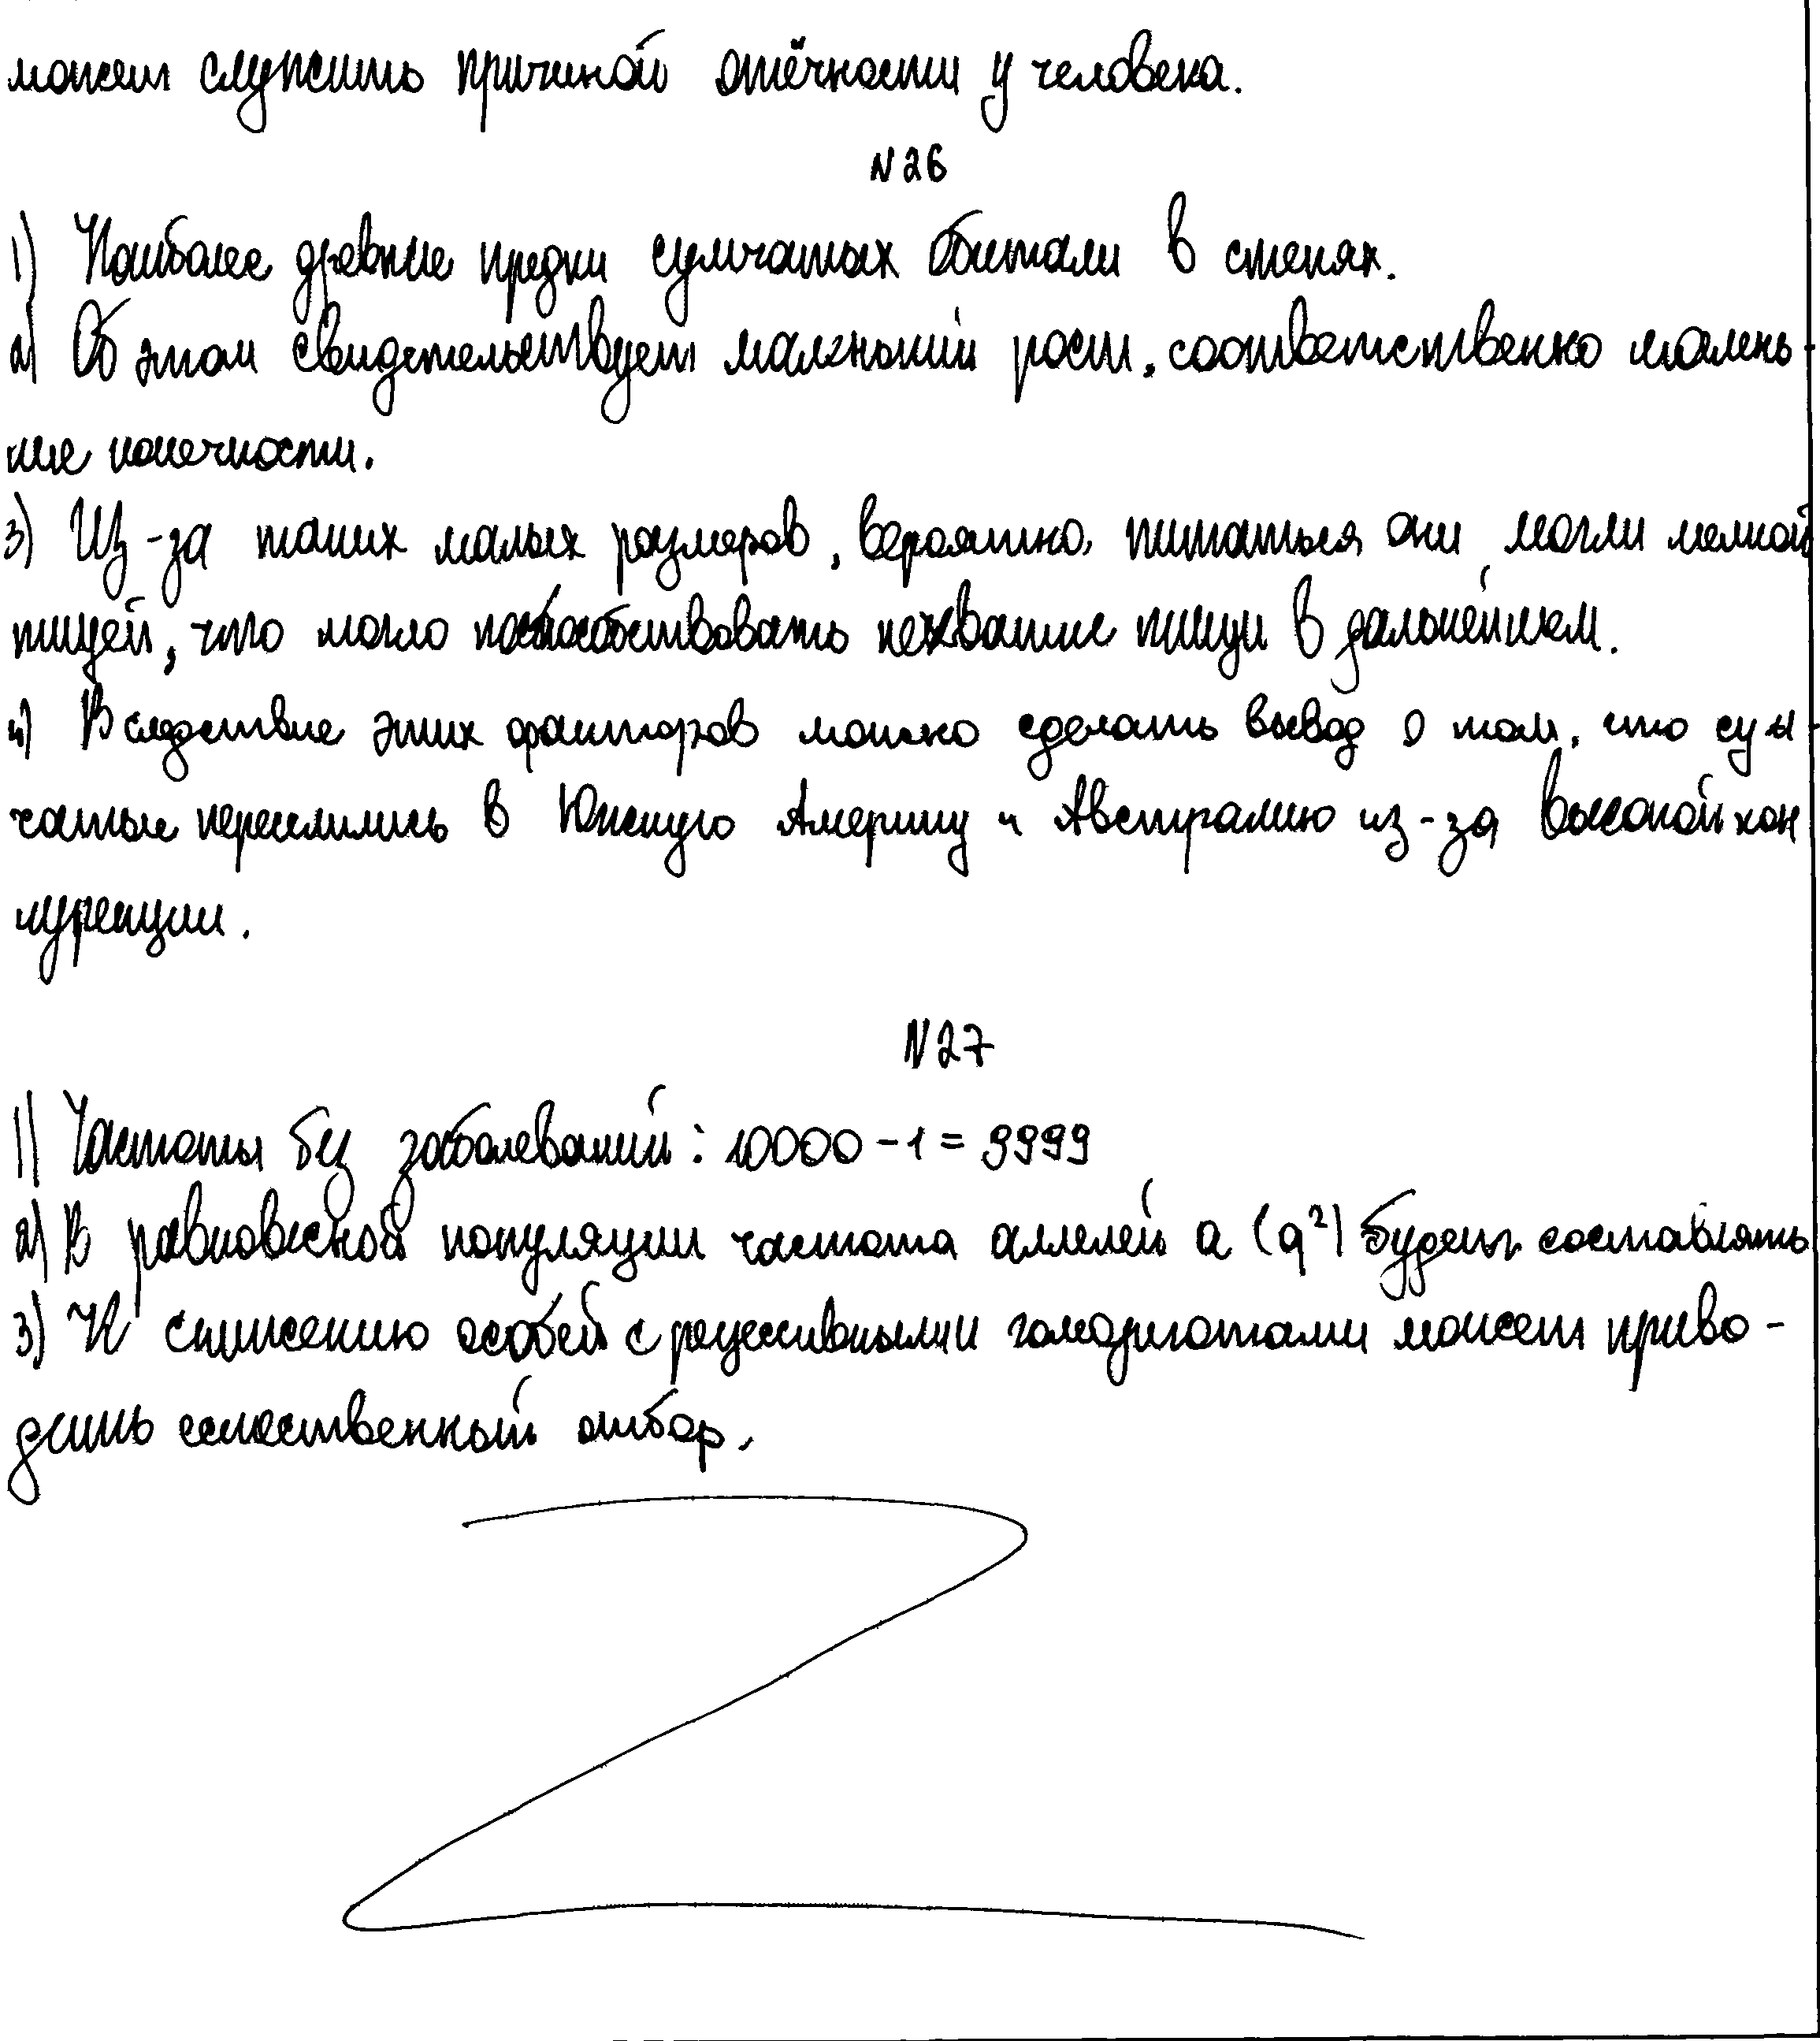 может служить причиной отёчности у человека.
N 26
1) Наиболее древние предки сумчатых обитали в степях.
2) Об этом свидетельствует маленький рост, соответственно малень-
кие конечности.
3) Из-за таких малых размеров, вероятно, питаться они могли мелкой
пищей, что могло поспособствовать нехватке пищи в дальнейшем.
4) Вследствие этих факторов можно сделать вывод о том, что сум-
чатые переселились в Южную Америку и Австралию из-за высокой кон
куренции.
N 27
1) Частоты без заболеваний: 10000 - 1 = 9999
2) В равновесной популяции частота аллелей a (q²) будет составлять
3) К снижению особей с рецессивными гомозиготами может приво-
дить естественный отбор.